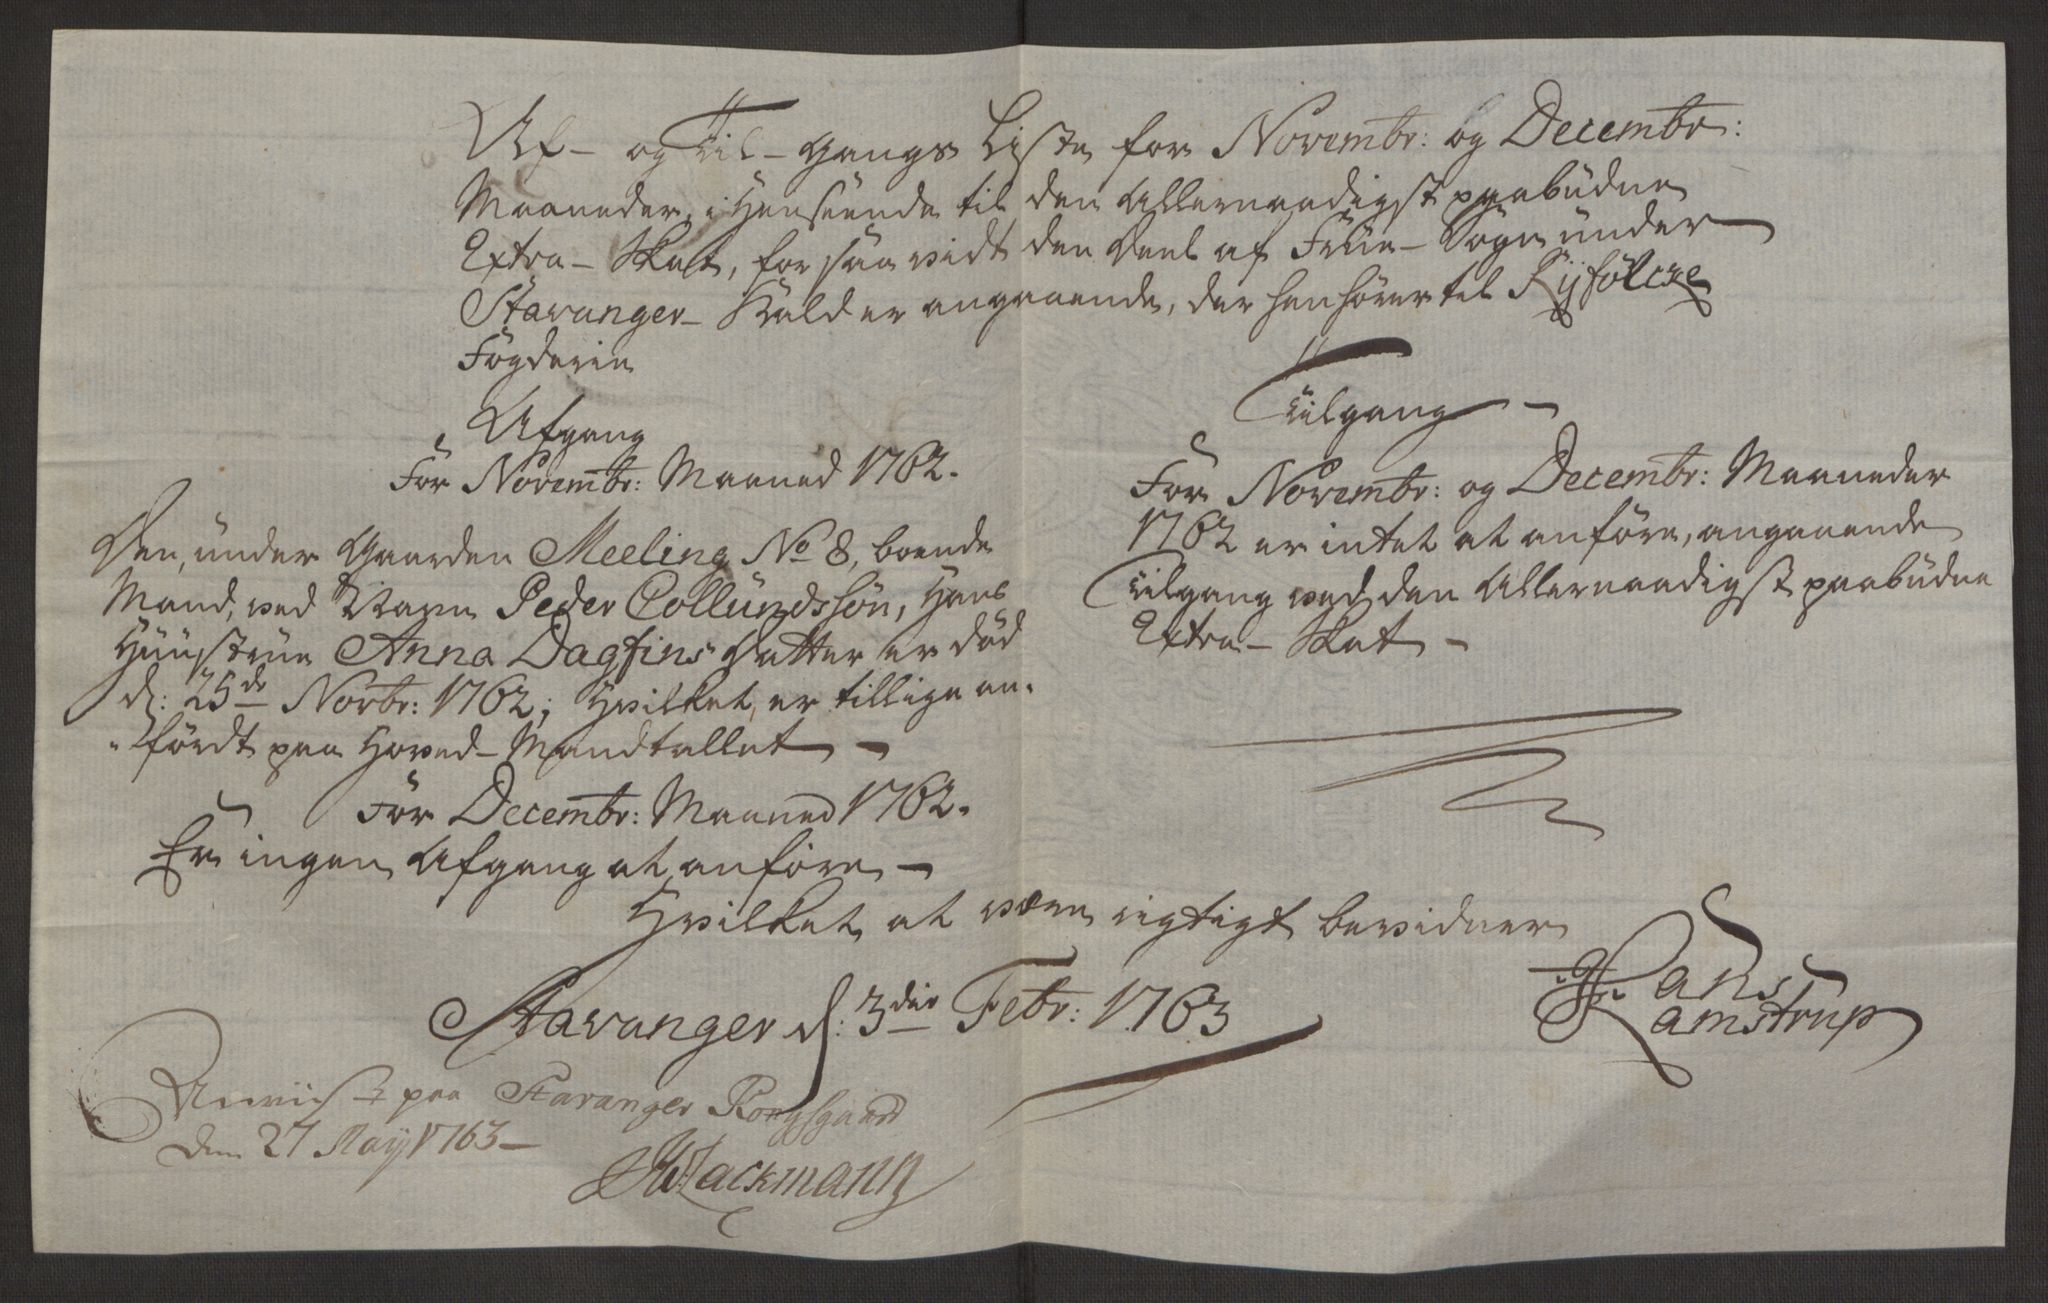 Af- og Til-Gangs Liste for Novembr: og Decembr:
Maaneder, i Henseende til den Allernaadigst paabudne
Extra-Skat, for saa vidt den Deel af Frue-Sogn under
Stavanger-Kald er angaaende, der henhører til Ryfølcke
Fogderie
Afgang
For Novembr: Maaned 1762.
Den, under Gaarden Meeling No 8, boende
Mand, ved Navn Peder Collundssøn, Hans
Huustrue Anna Dagfins Datter er død
d: 25de Novbr: 1762; Hvilket er tillige an-
ført paa Hoved-Mandtallet -
For Decembr: Maaned 1762.
Er ingen Afgang at anføre -
Tilgang -
For Novembr: og Decembr: Maaneder
1762 er intet at anføre, angaaende
Tilgang ved den Allernaadigst paabudne
Extra-Skat -
Hvilket at være rigtigt bevidner
Stavanger d: 3die Febr: 1763
Hans
Ramstrup
paa Stavanger Kongsgaard
den 27 May 1763 -